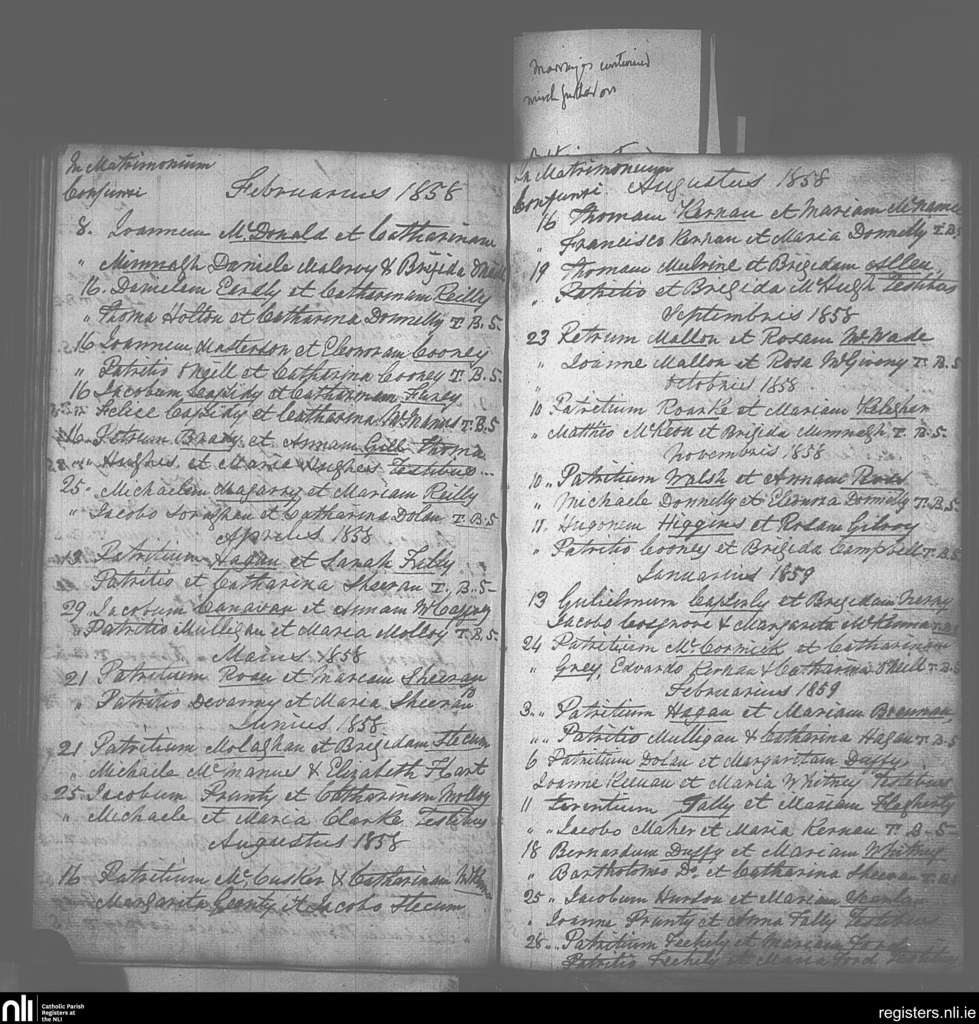 Marriages continued
much further on
In Matrimonium
Conjunxi
Februarius 1858
8. Joannem McDonald et Catharinam
" Mimnagh Daniele Mulervy & Brigida
16. Danielem Eardly et Catharinam Reilly
" Thoma Holton et Catharina Donnelly T.B.S.
16 Joannem Masterson et Elenoram Cooney
" Patritio ONeill et Catharina Cooney T.B.S.
16 Jacobum Cassidy et Catharinam
" Felice Cassidy et Catharina McManus T.B.S
16. Petrum Brady et Annam Gill Thoma
" Hughes et Maria Hughes Testibus
25. Michaelem Magarry et Mariam Reilly
" Jacobo Soraghan et Catharina Dolan T.B.S
Aprilis 1858
Patritium Hagan et Sarah Fally
Patritio et Catharina Sheeran T.B.S-
29 Jacobum Canavan et Annam McCaffrey
" Patritio Mulligan et Maria Molloy T.B.S.
Maius 1858
21 Patritium Ross et Mariam Sheeran
" Patritio Devanny et Maria Sheeran
Junius 1858
21 Patritium Molaghan et Brigidam Slecum
Michaele McManus & Elizabeth Hart
25 Jacobum Prunty et Catharinam
" Michaele et Maria Clarke Testibus
Augustus 1858
16 Patritium McCusker & Catharinam
Margarita Geenty et Jacobo Slecum
In Matrimonium
Conjunxi
Augustus 1858
16 Thomam Kernan et Mariam McNamee
" Francisco Kernan et Maria Donnelly T.B.S
19 Thomam Mulvine et Brigidam Allen
" Patritio et Brigida McHugh Testibus
Septembris 1858
23 Petrum Mallon et Rosam McWade
" Joanne Mallon et Rosa McGiveny T.B.S
Octobris 1858
10 Patritium Roarke et Mariam Keleghan
" Matthio McKeon et Brigida Mimnagh T.B.S.
Novembris 1858
10 " Patritium Walsh et Annam Ross
" Michaele Donnelly et Elenora Donnelly T.B.S.
11. Hugonem Higgins et Rosam Gilroy
" Patritio Cooney et Brigida Campbell T.B.S
Januarius 1859
13 Gulielmum Cassidy et Brigidam
Jacobo Cosgrove & Margarita McKenna T.B.S
24 Patritium McCormick et Catharinam
" Grey, Edvardo Kernan & Catharina ONeill T.B.S
Februarius 1859
3. " Patritium Hagan et Mariam Brennan,
" " Patritio Mulligan & Catharina Hagan T.B.S
6 Patritium Dolan et Margaritam Duffy,
Joanne Keenan et Maria Whitney Testibus
11 Terentium Fally et Mariam Flagherty
" " Jacobo Maher et Maria Kernan T.B.S-
18 Bernardum Duffy et Mariam Whitney
" Bartholomeo Do. et Catharina Sheeran T.B.S
25 " Jacobum Hudson et Mariam Scanlon
" Joanne Prunty et Anna Fally Testibus
28 " Patritium Feehely et Mariam Ford
Patritio Feehely et Maria Ford Testibus
nli
Catholic Parish
Registers at
the NLI
registers.nli.ie